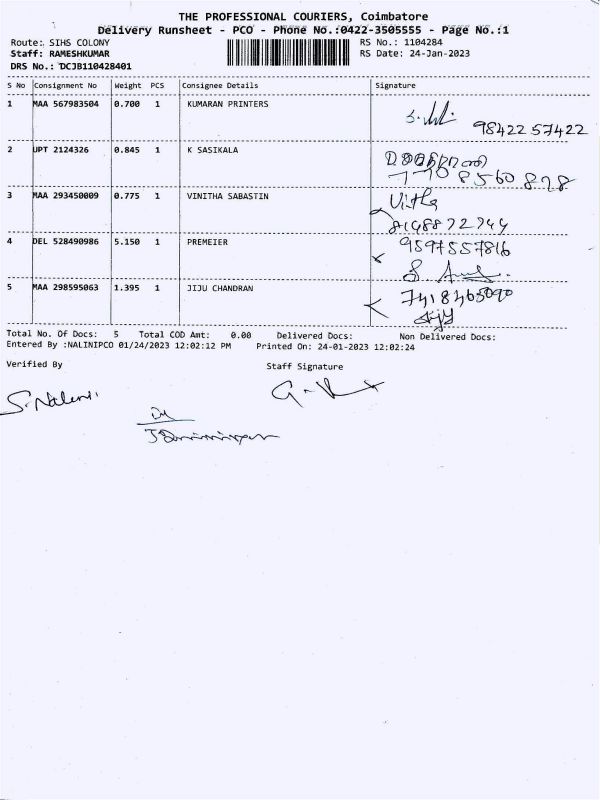 THE PROFESSIONAL COURIERS, Coimbatore
Delivery Runsheet - PCO - Phone No.:0422-3505555 - Page No.:1
Route: SIHS COLONY RS No.: 1104284
Staff: RAMESHKUMAR RS Date: 24-Jan-2023
DRS No.: DCJB110428401
S No Consignment No Weight PCS Consignee Details Signature
1 MAA 567983504 0.700 1 KUMARAN PRINTERS
98422 57422
2 UPT 2124326 0.845 1 K SASIKALA
3 MAA 293450009 0.775 1 VINITHA SABASTIN
4 DEL 528490986 5.150 1 PREMEIER 9597557816
5 MAA 298595063 1.395 1 JIJU CHANDRAN
Total No. Of Docs: 5 Total COD Amt: 0.00 Delivered Docs: Non Delivered Docs:
Entered By :NALINIPCO 01/24/2023 12:02:12 PM Printed On: 24-01-2023 12:02:24
Verified By Staff Signature
S. Nalini